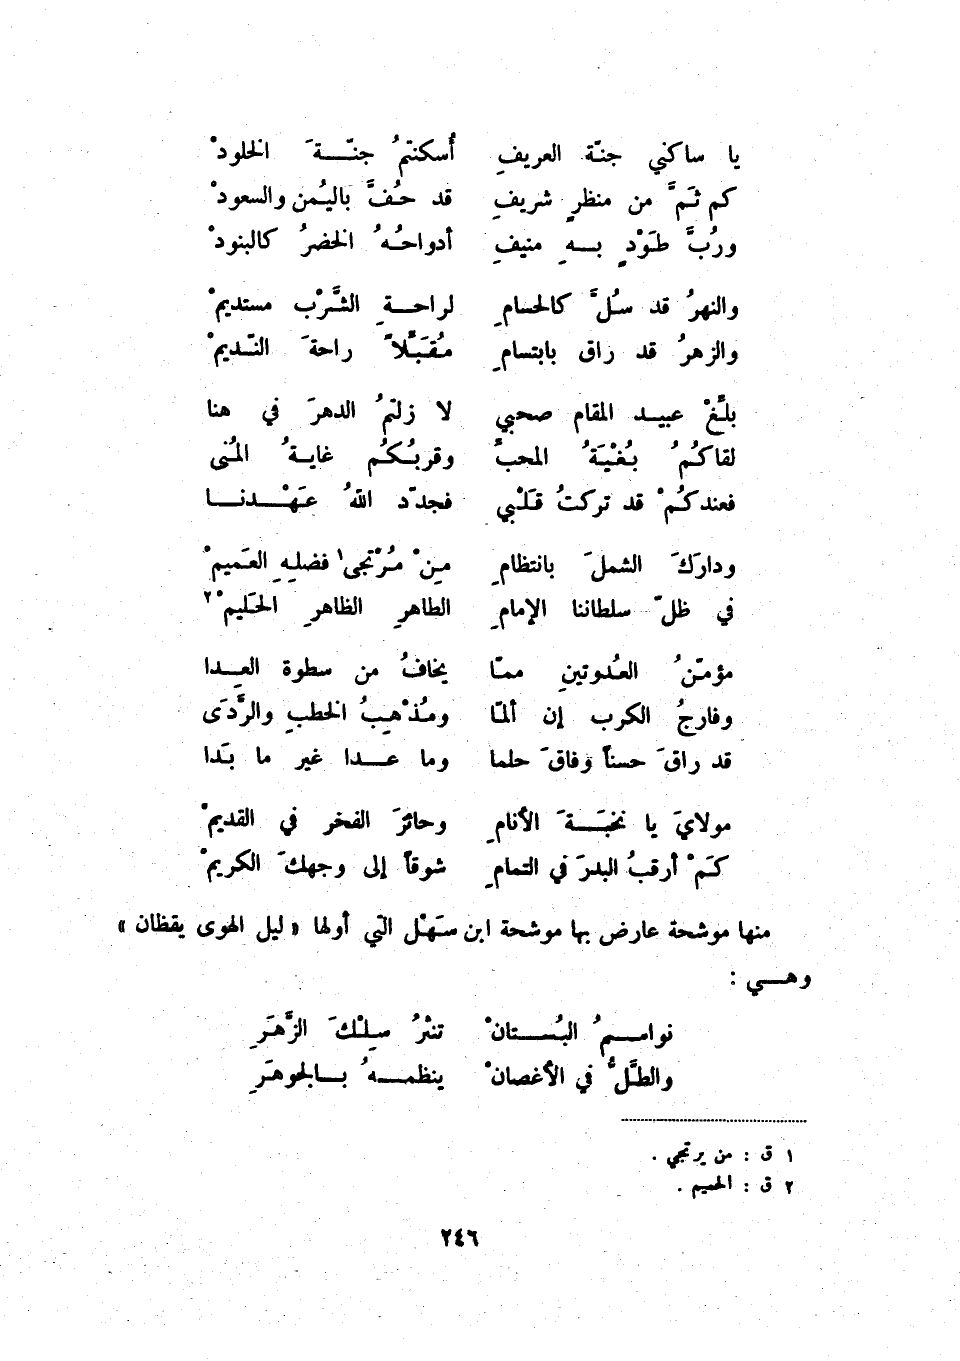 يا ساكني جنّة العريفِ أُسكنتمُ جنّــةَ الخلودْ
كم ثَمَّ من منظرٍ شريفِ قد حُفَّ باليُمن والسعودْ
ورُبَّ طَوْدٍ بــهِ منيفِ أدواحُهُ الخضرُ كالبنودْ
والنهرُ قد سُلَّ كالحسامِ لراحــةِ الشَّرْب مستديمْ
والزهرُ قد راق بابتسامِ مُقَبِّلاً راحةَ النّديمْ
بلِّغْ عبيــد المقام صحبي لا زلتمُ الدهرَ في هنا
لقاكُمُ بُغْيَةُ المحبِّ وقربُكُم غايــةُ المُنى
فعندكُمْ قد تركتُ قَلْبي فجدّد اللهُ عَهْدنــا
وداركَ الشملَ بانتظامِ مِنْ مُرْتجى١ فضلِهِ العَميمْ
في ظلّ سلطاننا الإمامِ الطاهرِ الظاهرِ الحَليمْ٢
مؤمّنُ العُدوتينِ ممّا يخافُ من سطوة العِــدا
وفارجُ الكرب إن ألمّا ومُذْهِبُ الخطبِ والرَّدَى
قد راقَ حسناً وفاقَ حلما وما عــدا غير ما بَدا
مولايَ يا نخبَــةَ الأنامِ وحائزَ الفخر في القديمْ
كَمْ أرقبُ البدرَ في التمامِ شوقاً إلى وجهكَ الكريمْ
منها موشحة عارض بها موشحة ابن سَهْل الّتي أولها « ليل الهوى يقظان »
وهــي :
نواســمُ البُســتانْ تنثُرُ سِلْكَ الزَّهَرِ
والطَّلُّ في الأغصانْ ينظمــهُ بــالجوهَرِ
١ ق : من يرتجي .
٢ ق : الحميم .
٢٤٦